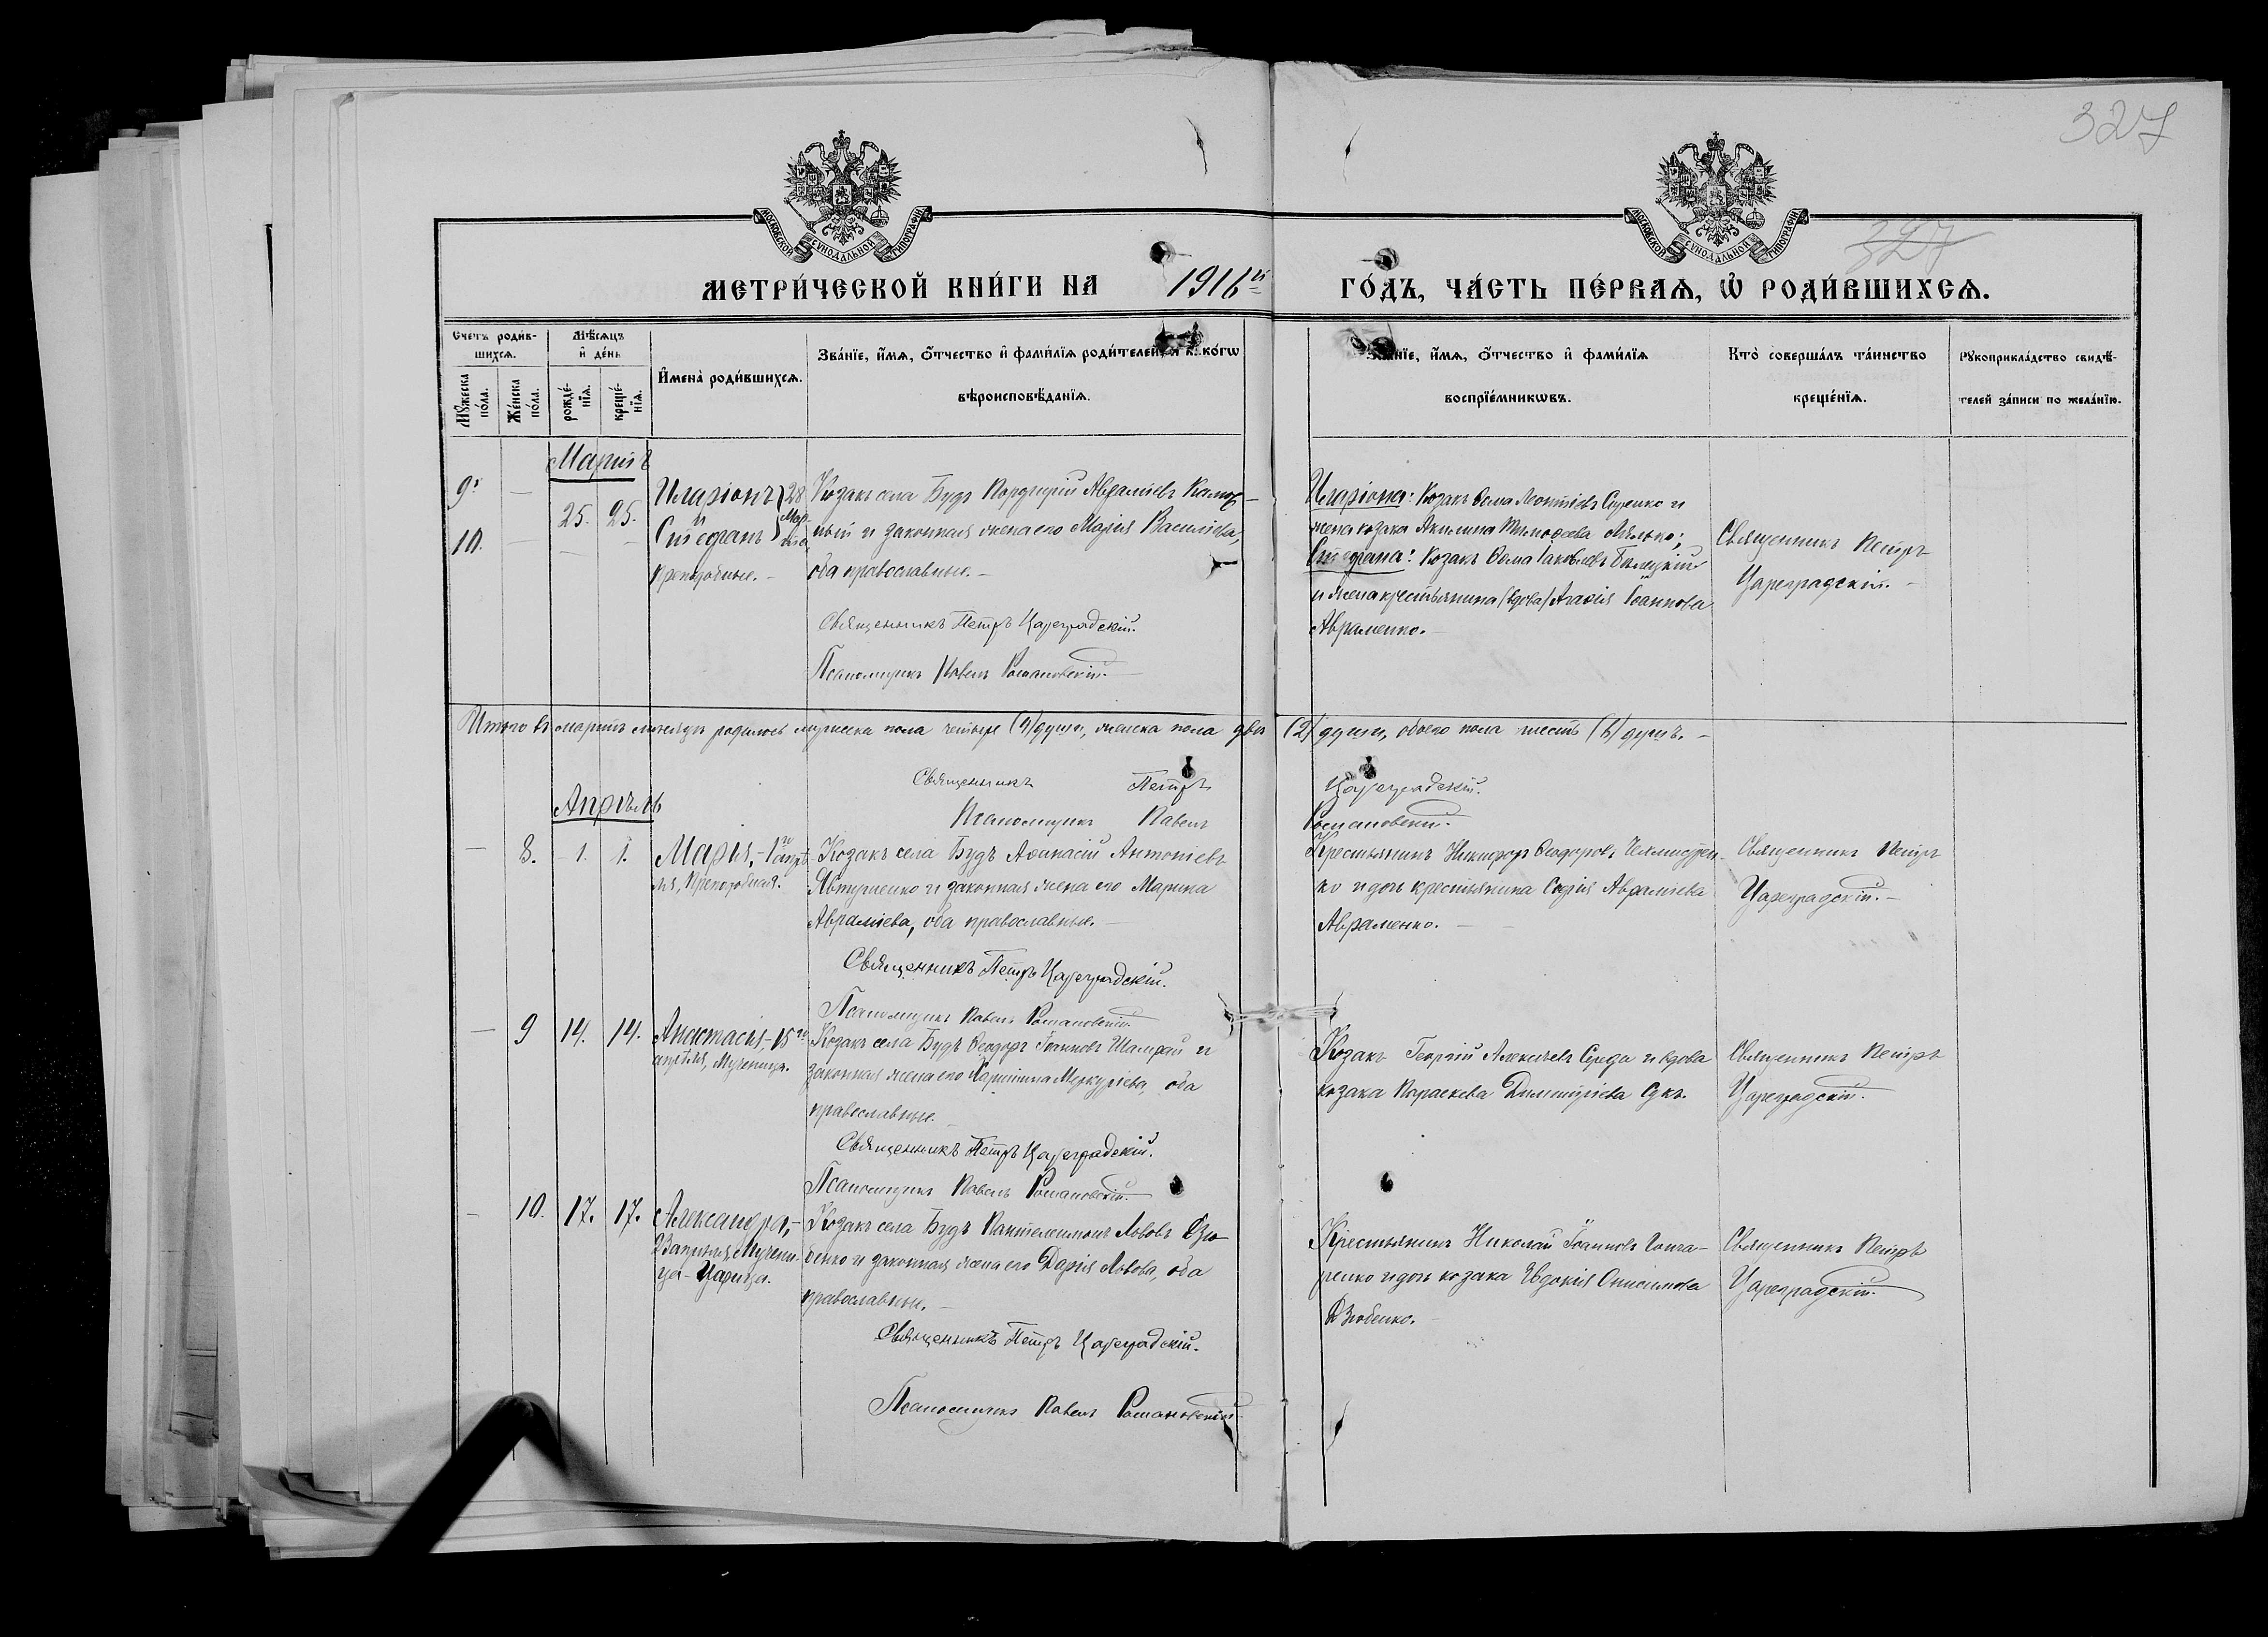 327
327
МОСКОВСКОЙ СѴНОДАЛЬНОЙ ТИПОГРАФІИ
МОСКОВСКОЙ СѴНОДАЛЬНОЙ ТИПОГРАФІИ
МЕТРИ́ЧЕСКОЙ КНИ́ГИ НА 1916й ГО́ДЪ, ЧА́СТЬ ПЕ́РВАѦ, Ѡ҆ РОДИ́ВШИХСѦ.
Счетъ роди́в-
шихсѧ.
Мꙋ́жеска по́ла.
Же́нска по́ла.
Мѣ́сѧцъ
и҆ де́нь
рожде́-
нїѧ.
креще́-
нїѧ.
И҆мена̀ роди́вшихсѧ.
Зва́нїе, и҆́мѧ, ѻ҆́тчество и҆ фами́лїѧ роди́телей, и҆ ко́гѡ
вѣроисповѣ́данїѧ.
Зва́нїе, и҆́мѧ, ѻ҆́тчество и҆ фами́лїѧ
воспрїе́мникѡвъ.
Кто̀ соверша́лъ та́инство
креще́нїѧ.
Рꙋкоприкла́дство свидѣ́-
телей за́писи по жела́нїю.
Мартъ
9. — 25. 25. Иларіонъ 28
10. — и Стефанъ Мар-
преподобные. -
Козакъ села Будъ Авраміевъ
ный и законная жена его Марія Васильева,
оба православные. -
Священникъ Петръ Цареградскій.
Псаломщикъ Павелъ Романовскій.
Иларіона: Козакъ Ѳома Леонтіевъ и
жена козака Акилина Тимоѳеева
Стефана: Козакъ Ѳома Іаковлевъ Билецкій
и жена крестьянина (вдова) Агафія Іоаннова
Авраменко. -
Священникъ Петръ
Цареградскій. -
Итого въ мартѣ мѣсяцѣ родилось мужеска пола четыре (4) души, женска пола двѣ (2) души, обоего пола шесть (6) душъ. -
Священникъ Петръ Цареградскій.
Псаломщикъ Павелъ Романовскій.
Апрѣль
— 8. 1. 1. Марія, - 1го апрѣ-
ля, Преподобная.
Козакъ села Будъ Аѳанасій Антоніевъ
Явтушенко и законная жена его Марина
Авраміева, оба православные. -
Священникъ Петръ Цареградскій.
Псаломщикъ Павелъ Романовскій.
Крестьянинъ Никифоръ Ѳеодоровъ
ко и дочь крестьянина Софія Авраміева
Авраменко. -
Священникъ Петръ
Цареградскій. -
— 9 14. 14. Анастасія, - 15го
апрѣля, Мученица.
Козакъ села Будъ Ѳеодоръ Іоанновъ Шамрай и
законная жена его Харитина Меркуріева, оба
православные. -
Священникъ Петръ Цареградскій.
Псаломщикъ Павелъ Романовскій.
Козакъ Георгій Алексѣевъ Середа и вдова
козака Параскева Димитріева
Священникъ Петръ
Цареградскій.
— 10. 17. 17. Александра, -
23 апрѣля, Мучени-
ца - Царица.
Козакъ села Будъ Пантелеимонъ Львовъ Дзю-
бенко и законная жена его Дарія Львова, оба
православные. -
Священникъ Петръ Цареградскій.
Псаломщикъ Павелъ Романовскій.
Крестьянинъ Николай Іоанновъ Гонча-
ренко и дочь козака Евдокія Онисимова
Дзюбенко.
Священникъ Петръ
Цареградскій.